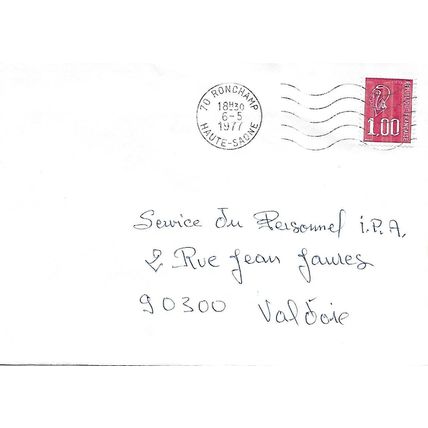 70 RONCHAMP
18H30
6-5
1977
HAUTE-SAONE
1.00
Service du Personnel I.P.A.
2 Rue Jean Jaures
90300 Valdoie